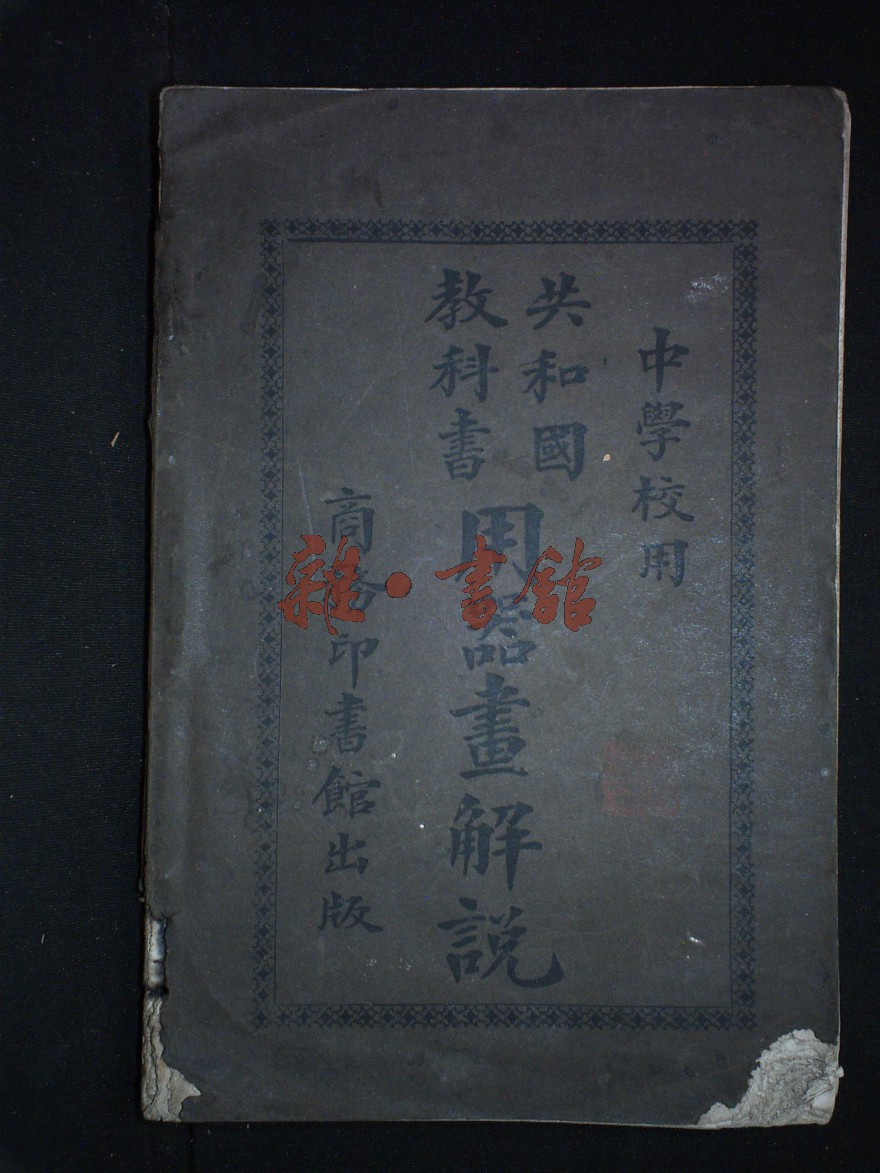 中學校用
共和國
教科書
用器畫解說
商務印書館出版
雜·書館